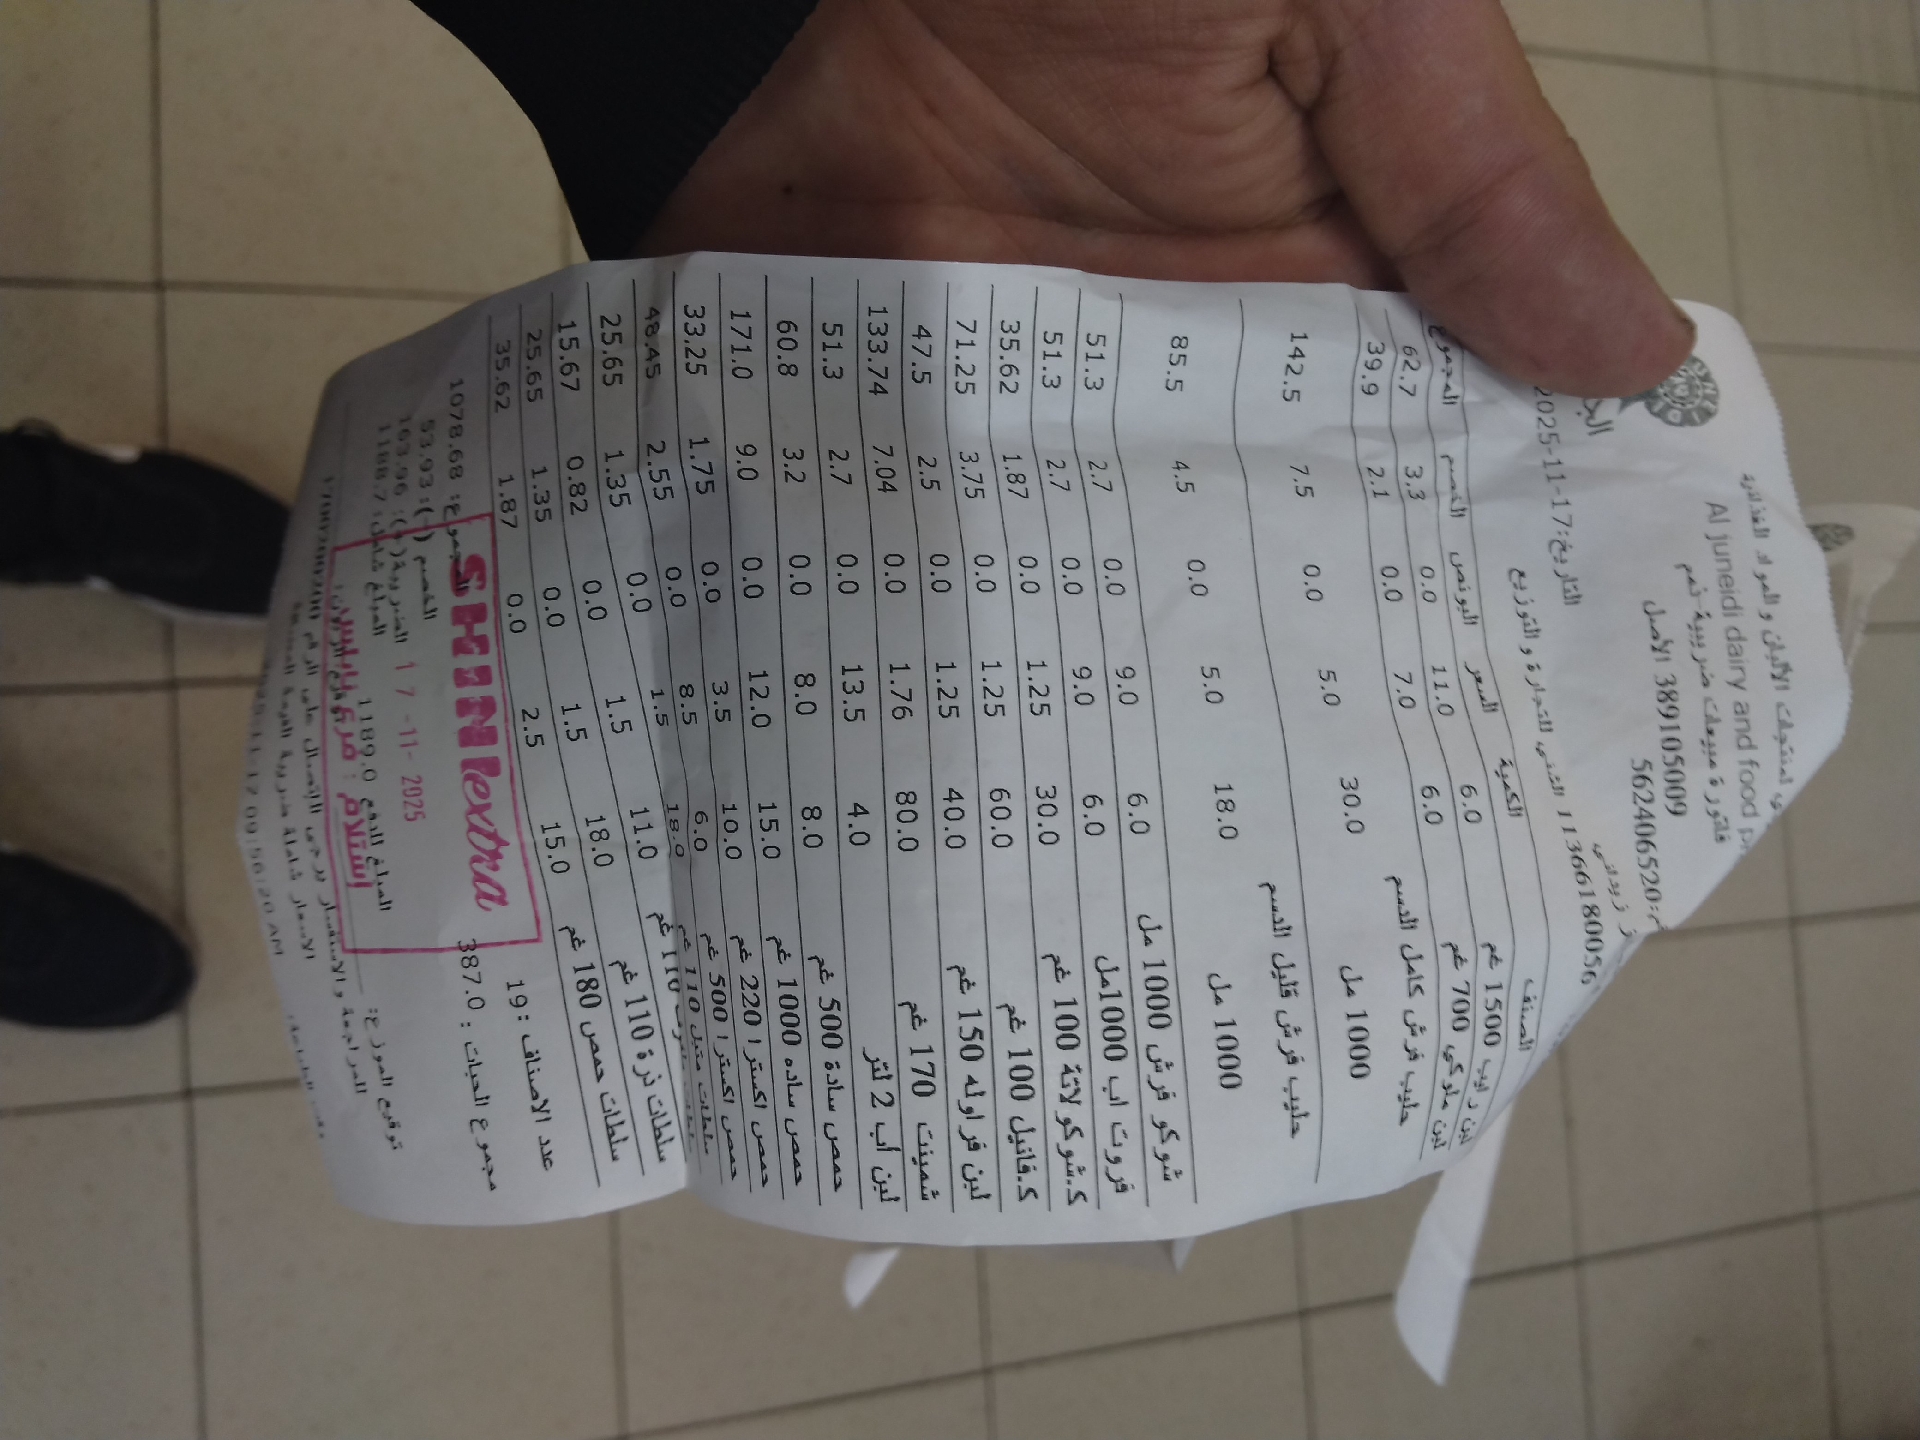 لمنتجات الألبان و المواد الغذائية
Al juneidi dairy and food
فاتورة مبيعات ضريبية-نعم
562406520
389105009 الأصل
1136618005 الشني للتجارة و التوزيع
التاريخ:17-11-2025
الصنف الكمية السعر البونص الخصم المجموع
لبن رايب 1500 غم 6.0 11.0 0.0 3.3 62.7
لبن ملوكي 700 غم 6.0 7.0 0.0 2.1 39.9
حليب فرش كامل الدسم 1000 مل 30.0 5.0 0.0 7.5 142.5
حليب فرش قليل الدسم 1000 مل 18.0 5.0 0.0 4.5 85.5
شوكو فرش 1000 مل 6.0 9.0 0.0 2.7 51.3
فروت اب 1000مل 6.0 9.0 0.0 2.7 51.3
ك.شوكولاتة 100 غم 30.0 1.25 0.0 1.87 35.62
ك.فانيل 100 غم 60.0 1.25 0.0 3.75 71.25
لبن فراوله 150 غم 40.0 1.25 0.0 2.5 47.5
شمينت 170 غم 80.0 1.76 0.0 7.04 133.74
لبن أب 2 لتر 4.0 13.5 0.0 2.7 51.3
حمص سادة 500 غم 8.0 8.0 0.0 3.2 60.8
حمص ساده 1000 غم 15.0 12.0 0.0 9.0 171.0
حمص اكسترا 220 غم 10.0 3.5 0.0 1.75 33.25
حمص اكسترا 500 غم 6.0 8.5 0.0 2.55 48.45
سلطات متبل 110 غم 18.0 1.5 0.0 1.35 25.65
110 غم 11.0 1.5 0.0 0.82 15.67
سلطات ذرة 110 غم 18.0 1.5 0.0 1.35 25.65
سلطات حمص 180 غم 15.0 2.5 0.0 1.87 35.62
عدد الاصناف :19
مجموع الحبات : 387.0 المجموع: 1078.68
الخصم (-): 53.93
الضريبة(+): 163.96
المبلغ شامل: 1188.7
المبلغ الدفع 1189.0
SHINI extra
17 -11- 2025
استلام : فرع نابلس
توقيع الموزع:
المراجعة و الاستفسار يرجى الاتصال على الرقم 1700200200
الاسعار شاملة ضريبة القيمة المضافة
09:56:20 AM